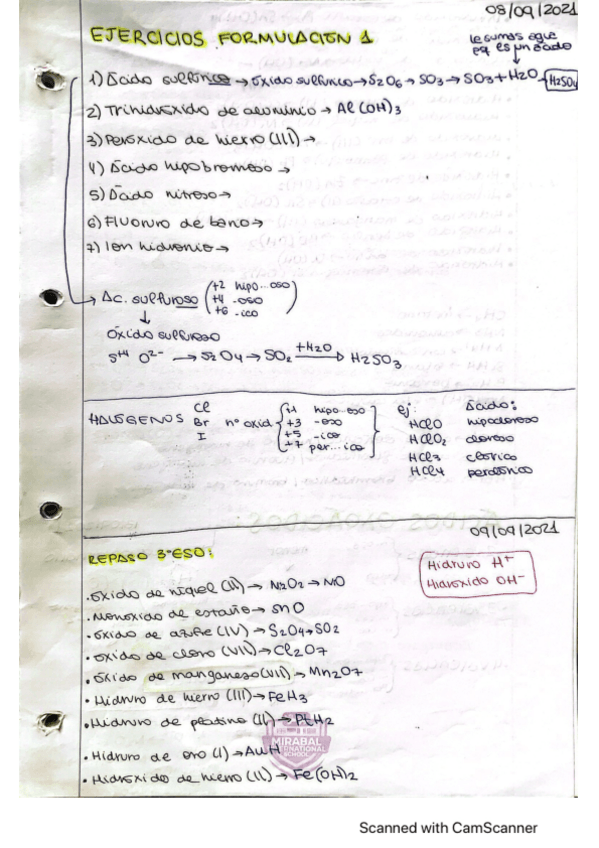 08/09/2021
EJERCICIOS FORMULACIÓN 1
le sumas agua
pq es un ácido
1) Ácido sulfúrico → óxido sulfúrico → S2O6 → SO3 → SO3 + H2O → H2SO4
2) Trihidróxido de aluminio → Al(OH)3
3) Peróxido de hierro (III) →
4) Ácido hipobromoso →
5) Ácido nitroso →
6) Fluoruro de bario →
7) Ion hidronio →
→ Ác. sulfuroso (+2 hipo...oso
+4 -oso
+6 -ico)
↓
óxido sulfuroso
S+4 O2- → S2O4 → SO2 +H2O → H2SO3
HALÓGENOS Cl Br I nº oxid {+1 hipo...oso
+3 -oso
+5 -ico
+7 per...ico}
ej: Ácido:
HClO hipocloroso
HClO2 cloroso
HCl3 clórico
HCl4 perclórico
09/09/2021
REPASO 3ºESO:
Hidruro H+
Hidróxido OH-
· óxido de níquel (II) → Ni2O2 → NiO
· Monóxido de estaño → SnO
· óxido de azufre (IV) → S2O4 → SO2
· óxido de cloro (VII) → Cl2O7
· óxido de manganeso (VII) → Mn2O7
· Hidruro de hierro (III) → FeH3
· Hidruro de platino (II) → PtH2
· Hidruro de oro (I) → AuH
· Hidróxido de hierro (II) → Fe(OH)2
MIRABAL
INTERNATIONAL
SCHOOL
Scanned with CamScanner